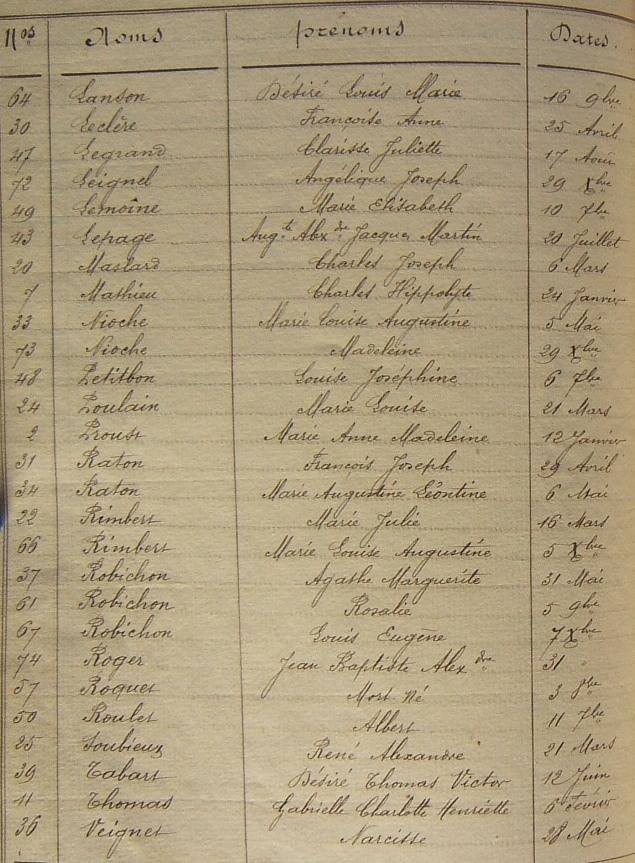 Nos Noms prénoms Dates.
64 Lanson Désiré Louis Marie 16 9bre
30 Leclère Françoise Anne 25 Avril
47 Legrand Clarisse Juliette 17 Août
72 Leignel Angélique Joseph 29 Xbre
49 Lemoine Marie Elisabeth 10 7bre
43 Lepage Augte Alexdre Jacques Martin 20 Juillet
20 Mallard Charles Joseph 6 Mars
7 Mathieu Charles Hippolyte 24 Janvier
33 Nioche Marie Louise Augustine 5 Mai
73 Nioche Madeleine 29 Xbre
48 Petitbon Louise Joséphine 6 7bre
24 Poulain Marie Louise 21 Mars
2 Proust Marie Anne Madeleine 12 Janvier
31 Raton François Joseph 29 Avril
34 Raton Marie Augustine Léontine 6 Mai
22 Rimbert Marie Julie 16 Mars
66 Rimbert Marie Louise Augustine 5 Xbre
37 Robichon Agathe Marguerite 31 Mai
61 Robichon Rosalie 5 9bre
67 Robichon Louis Eugène 7 Xbre
74 Roger Jean Baptiste Alexdre 31 "
57 Roquet Mort Né 3 8bre
50 Roulet Albert 11 7bre
25 Soubieux René Alexandre 21 Mars
39 Tabart Désiré Thomas Victor 12 Juin
11 Thomas Gabrielle Charlotte Henriette 6 Février
36 Veignet Narcisse 28 Mai